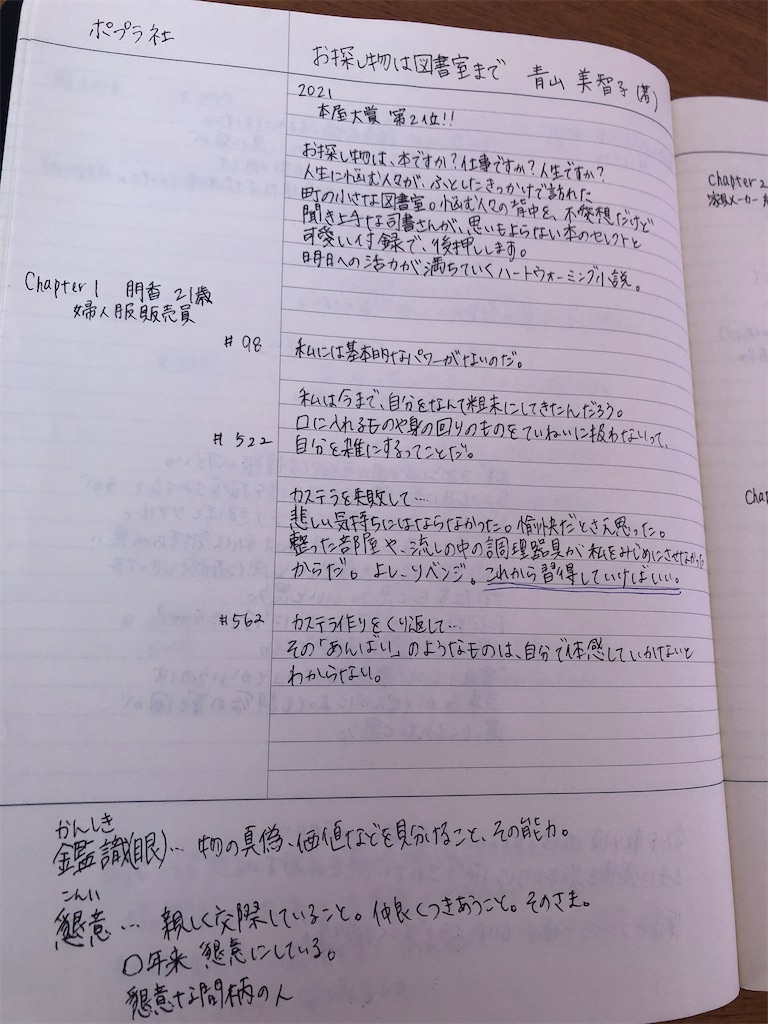 ポプラ社
お探し物は図書室まで 青山 美智子(著)
2021
本屋大賞 第2位!!
お探し物は、本ですか?仕事ですか?人生ですか?
人生に悩む人々が、ふとしたきっかけで訪れた
町の小さな図書室。悩む人々の背中を、不愛想だけど
聞き上手な司書さんが、思いもよらない本のセレクトと
可愛い付録で、後押しします。
明日への活力が満ちていくハートウォーミング小説。
Chapter 1 朋香 21歳
婦人服販売員
#98 私には基本的なパワーがないのだ。
私は今まで、自分をなんて粗末にしてきたんだろう。
口に入れるものや身の回りのものをていねいに扱わないって、
#522 自分を雑にするってことだ。
カステラを失敗して…
悲しい気持ちにはならなかった。愉快だとさえ思った。
整った部屋や、流しの中の調理器具が私をみじめにさせなかった
からだ。よし、リベンジ。これから習得していけばいい。
#562 カステラ作りをくり返して…
その「あんばい」のようなものは、自分で体感していかないと
わからない。
かんしき
鑑識(眼)… 物の真偽、価値などを見分けること、その能力。
こんい
懇意… 親しく交際していること。仲良くつきあうこと。そのさま。
〇年来 懇意にしている。
懇意な間柄の人
Chapter 2
家具メーカー
Cha